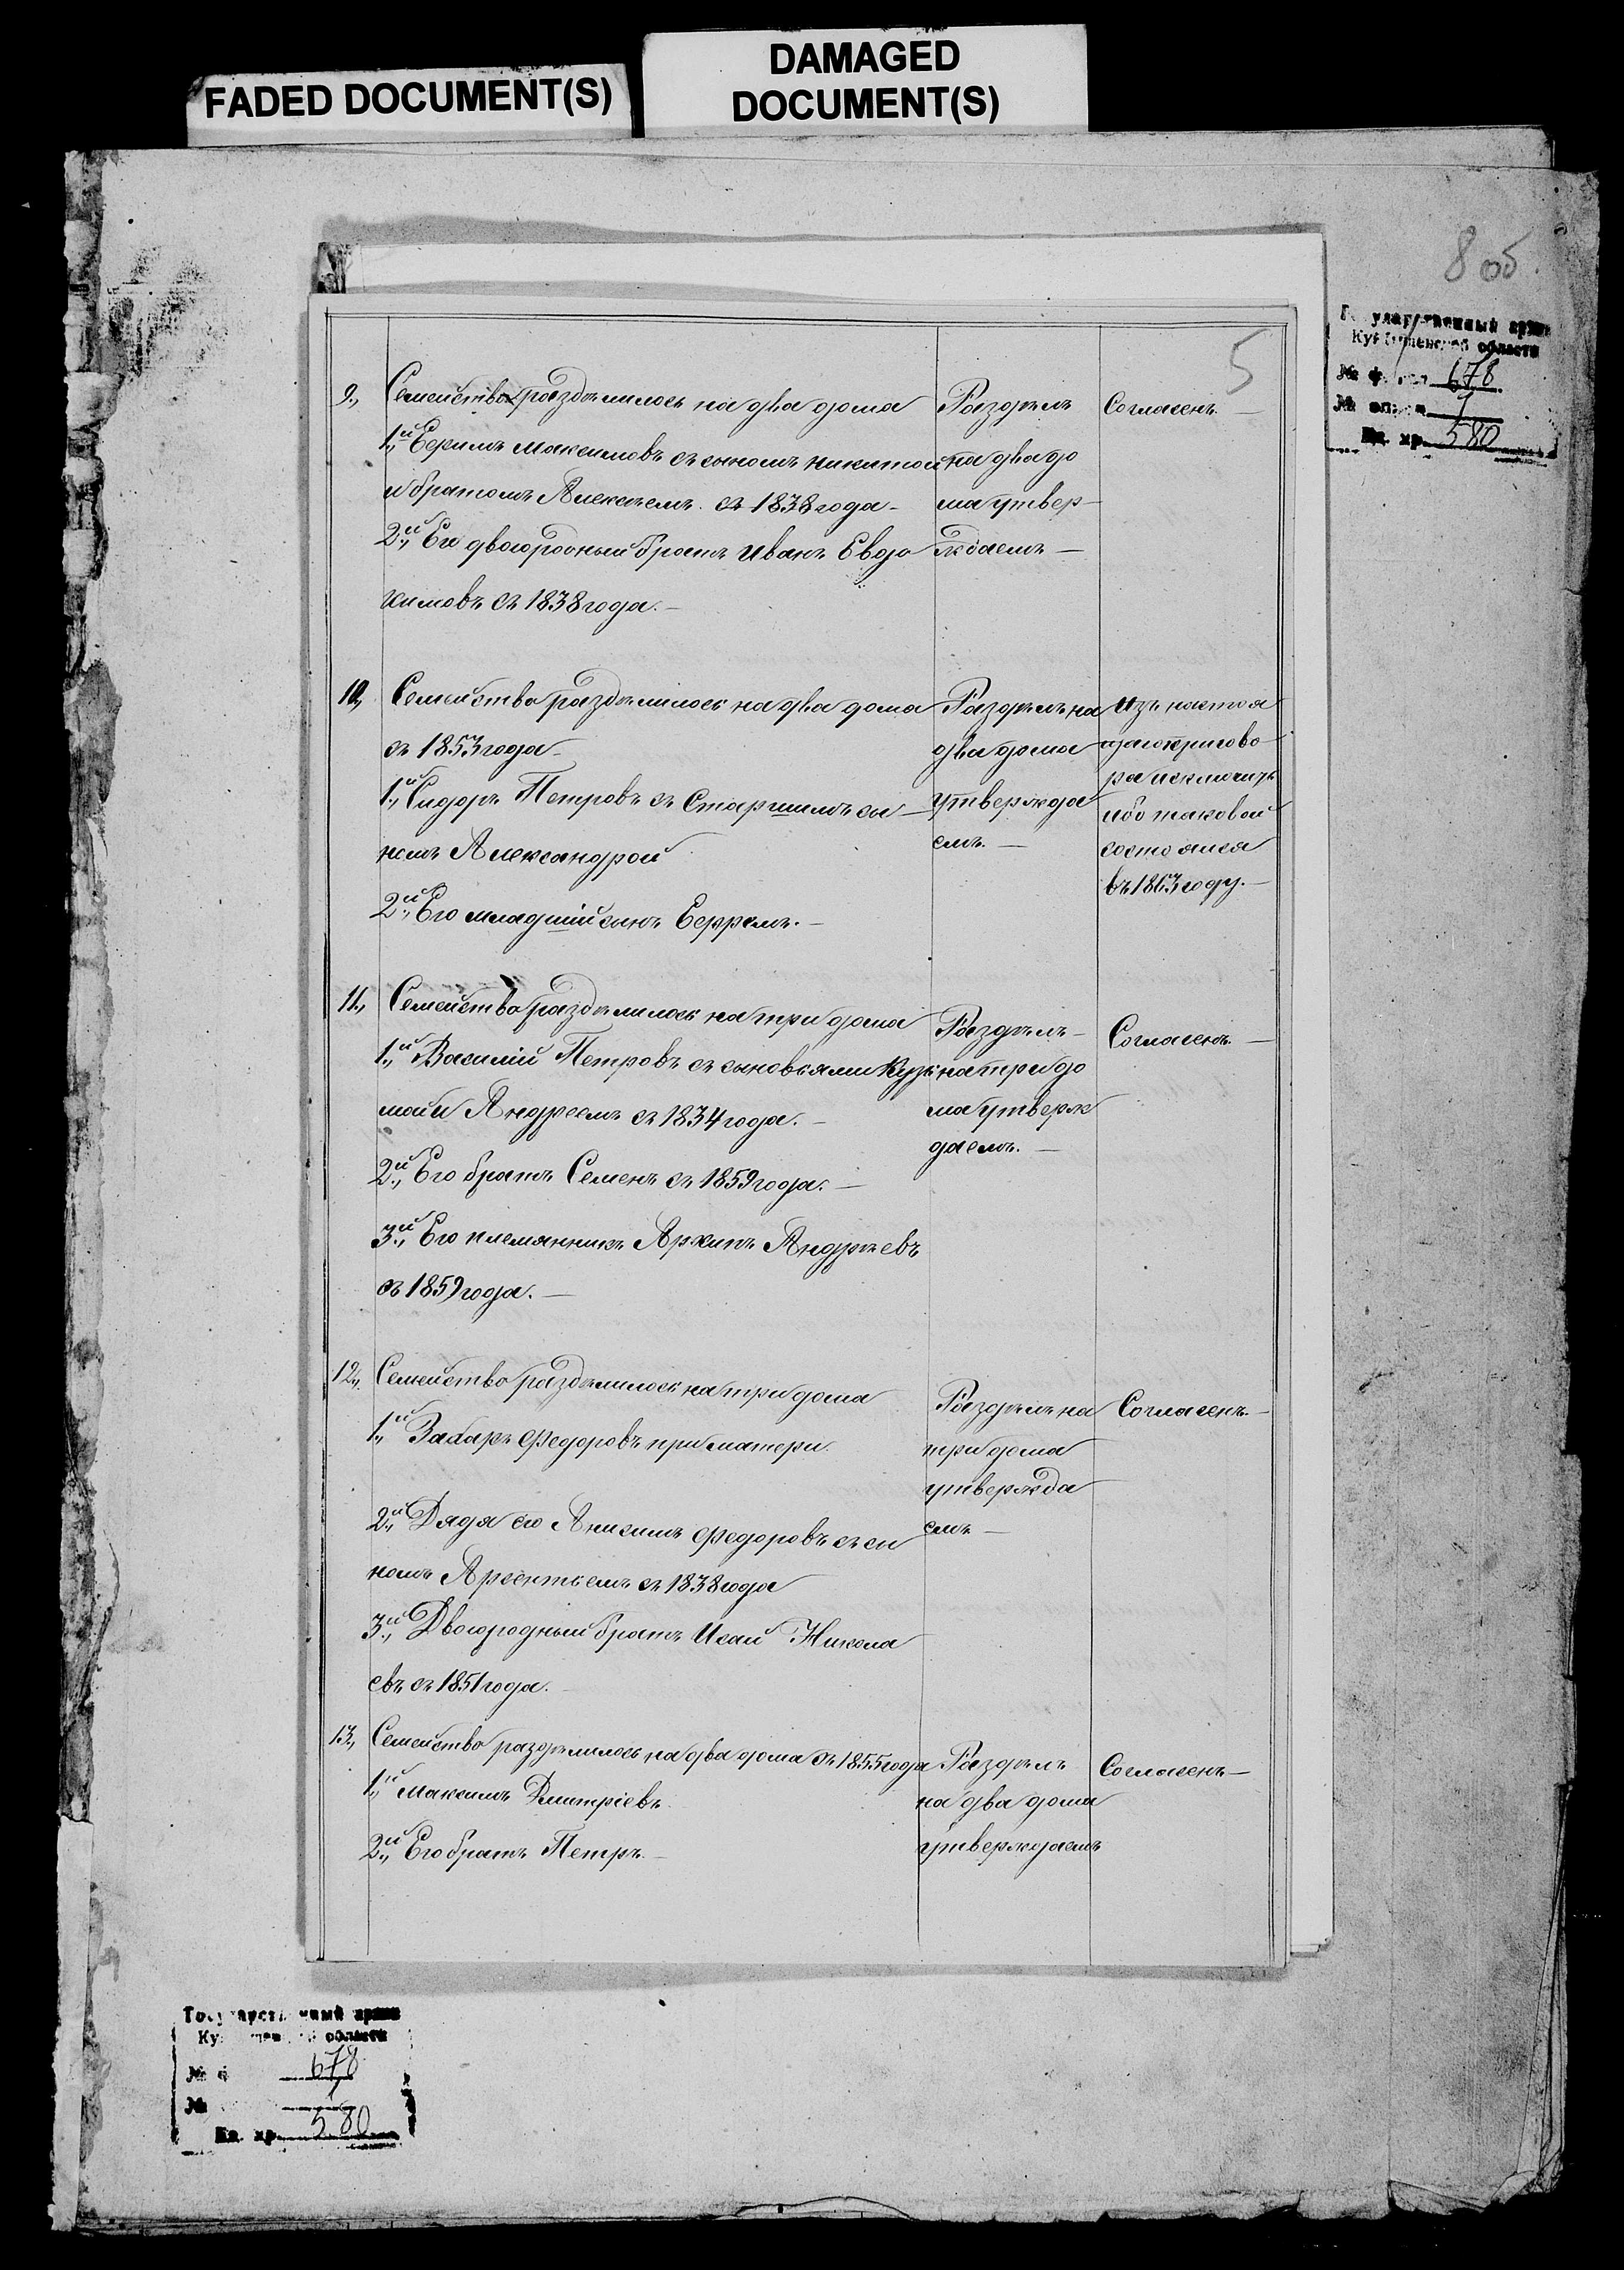 FADED DOCUMENT(S)
DAMAGED
DOCUMENT(S)
8 об.
5
Государственный архив
Куйбышевской области
№ фонда 678
№ описи 1
Ед. хр. 580
9., Семейство раздѣлилось на два дома
1.й Ефимъ Максимовъ съ сыномъ Никитой
и братомъ Алексѣемъ съ 1838 года -
2.й Его двоюродный братъ Иванъ Евдо
кимовъ съ 1838 года. -
Раздѣлъ
на два до
ма утвер-
ждаемъ -
Согласенъ. -
10., Семейство раздѣлилось на два дома
съ 1853 года -
1.й Сидоръ Петровъ съ Старшимъ сы-
номъ Александрой
2.й Его младшій сынъ Ефремъ. -
Раздѣлъ на
два дома
утвержда
емъ. -
Изъ настоя
щаго пригово
ра исключить
ибо таковой
состоялся
въ 1863 году. -
11., Семейство раздѣлилось на три дома
1.й Василій Петровъ съ сыновьями Кузь
мой и Андреемъ съ 1834 года. -
2.й Его братъ Семенъ съ 1859 года. -
3.й Его племянникъ Архипъ Андрѣевъ
съ 1859 года. -
Раздѣлъ -
на три до
ма утверж
даемъ. -
Согласенъ. -
12., Семейство раздѣлилось на три дома
1.й Захаръ Федоровъ при матери.
2.й Дядя его Анисимъ Федоровъ съ сы
номъ Арсентьемъ съ 1838 года
3.й Двоюродный братъ Исай Никола
евъ съ 1851 года. -
Раздѣлъ на
три дома
утвержда
емъ -
Согласенъ. -
13., Семейство раздѣлилось на два дома съ 1855 года
1.й Максимъ Дмитріевъ
2.й Его братъ Петръ. -
Раздѣлъ
на два дома
утверждаемъ
Согласенъ -
Государственный архив
Куйбышевской области
№ ф 678
№ 1
Ед. хр. 580